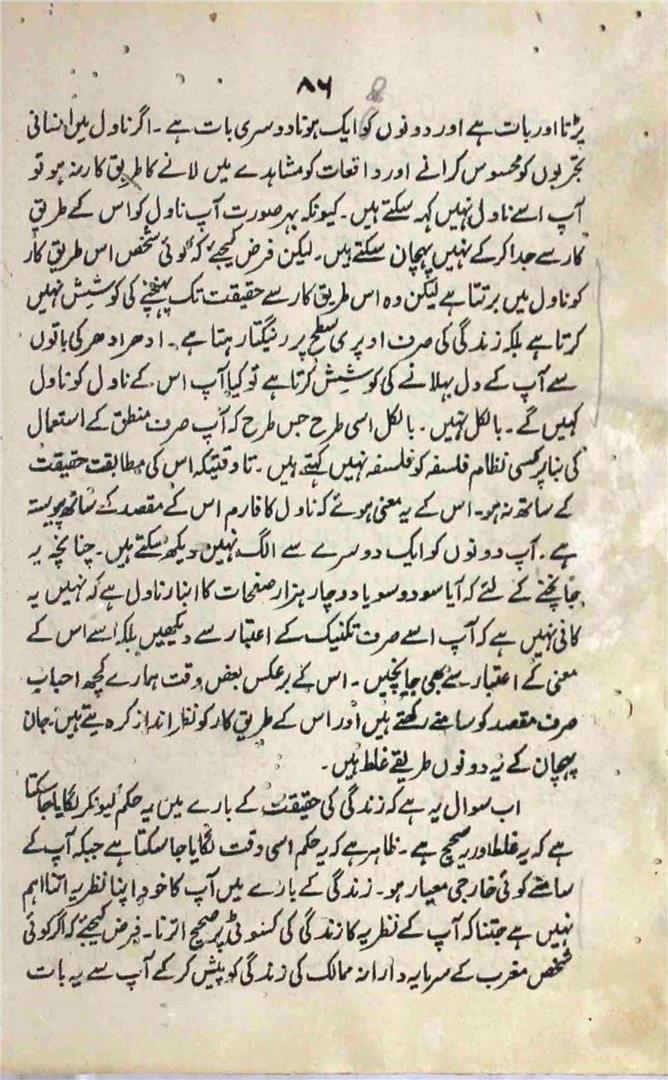 ۸۶
پڑتا اور بات ہے اور دونوں کو ایک ہونا دوسری بات ہے ۔ اگر ناول میں انسانی
تجربوں کو محسوس کرانے اور واقعات کو مشاہدے میں لانے کا طریق کار نہ ہو تو
آپ اسے ناول نہیں کہہ سکتے ہیں ۔ کیونکہ بہر صورت آپ ناول کو اس کے طریق
کار سے جدا کرکے نہیں پہچان سکتے ہیں ۔ لیکن فرض کیجئے کہ کوئی شخص اس طریق کار
کو ناول میں برتتا ہے لیکن وہ اس طریق کار سے حقیقت تک پہنچنے کی کوشش نہیں
کرتا ہے بلکہ زندگی کی صرف اوپری سطح پر رینگتا رہتا ہے ۔ ادھر ادھر کی باتوں
سے آپ کے دل بہلانے کی کوشش کرتا ہے تو کیا آپ اس کے ناول کو ناول
کہیں گے ۔ بالکل نہیں ۔ بالکل اسی طرح جس طرح کہ آپ صرف منطق کے استعمال
کی بنا پر کسی نظام فلسفہ کو فلسفہ نہیں کہتے ہیں ۔ تا وقتیکہ اس کی مطابقت حقیقت
کے ساتھ نہ ہو ۔ اس کے یہ معنی ہوئے کہ ناول کا فارم اس کے مقصد کے ساتھ پیوستہ
ہے ۔ آپ دونوں کو ایک دوسرے سے الگ نہیں دیکھ سکتے ہیں ۔ چنانچہ یہ
جانچنے کے لئے کہ آیا سو دو سو یا دو چار ہزار صفحات کا انبار ناول ہے کہ نہیں یہ
کافی نہیں ہے کہ آپ اسے صرف تکنیک کے اعتبار سے دیکھیں بلکہ اسے اس کے
معنی کے اعتبار سے بھی جانچیں ۔ اس کے برعکس بعض وقت ہمارے کچھ احباب
صرف مقصد کو سامنے رکھتے ہیں اور اس کے طریق کار کو نظر انداز کر دیتے ہیں ۔ جان
پہچان کے یہ دونوں طریقے غلط ہیں ۔
اب سوال یہ ہے کہ زندگی کی حقیقت کے بارے میں یہ حکم کیونکر لگایا جا سکتا
ہے کہ یہ غلط اور یہ صحیح ہے ۔ ظاہر ہے کہ یہ حکم اسی وقت لگایا جا سکتا ہے جبکہ آپ کے
سامنے کوئی خارجی معیار ہو ۔ زندگی کے بارے میں آپ کا خود اپنا نظریہ اتنا اہم
نہیں ہے جتنا کہ آپ کے نظریہ کا زندگی کی کسوٹی پر صحیح اترنا ۔ فرض کیجئے کہ اگر کوئی
شخص مغرب کے سرمایہ دارانہ ممالک کی زندگی کو پیش کرکے آپ سے یہ بات